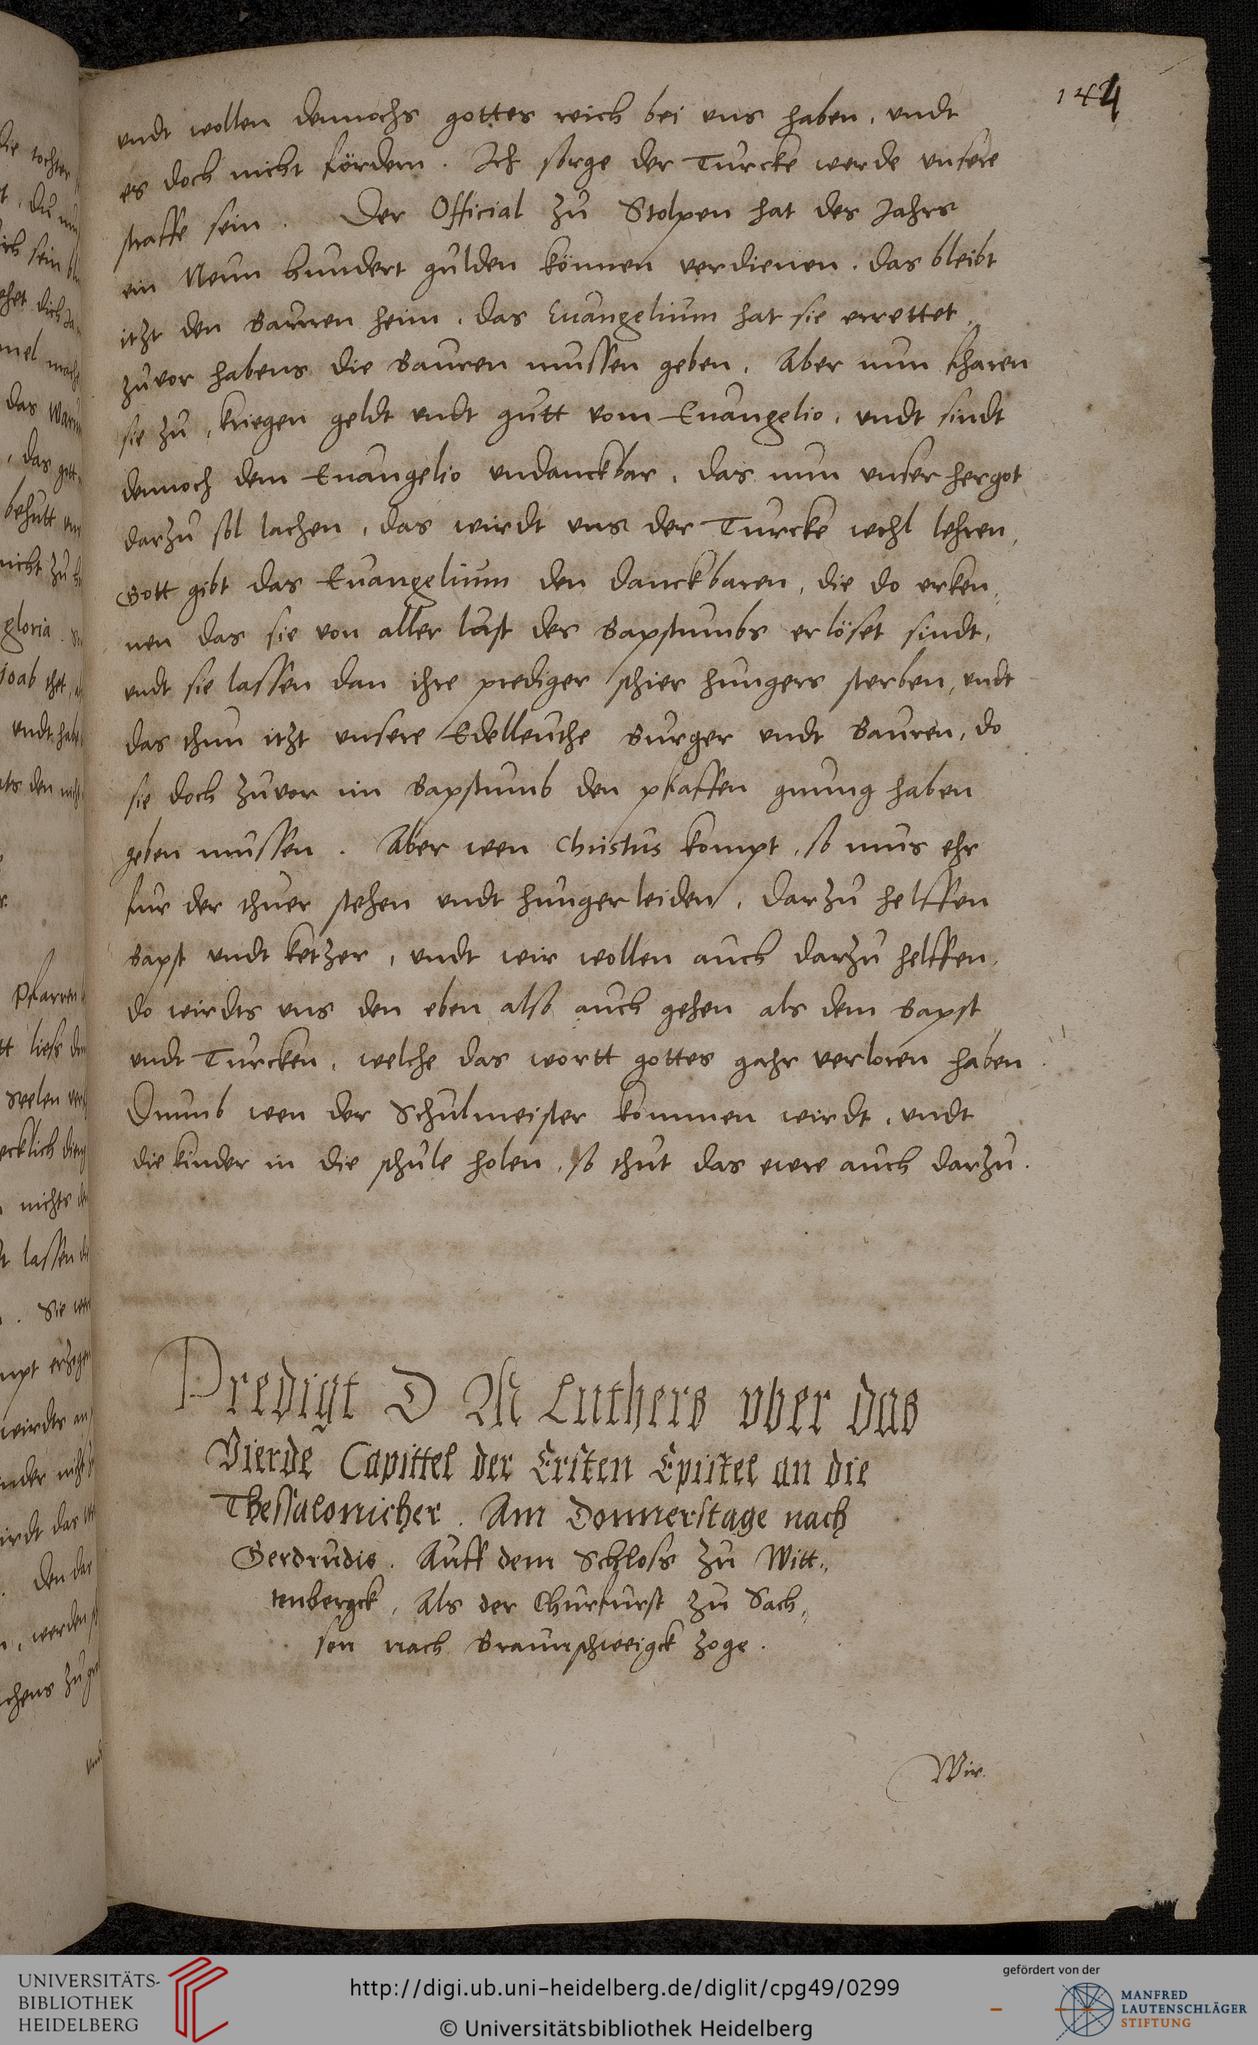 144
vndt wollen dennochs gottes reich bei vns haben, vndt
es doch nicht fördern. Ich sorge der Turcke werde vnsere
straffe sein. Der Official zu Stolpen hat des Jahrs
ein Neun hundert gulden können verdienen. das bleibt
itzt den Bauren heim, das Euangelium hat sie errettet,
zuvor habens die Bauren mussen geben. Aber nun scharen
sie zu, kriegen geldt vndt gutt vom Euangelio, vndt sindt
dennoch dem Euangelio vndanckbar, das nun vnser hergot
darzu sol lachen, das wirdt vns der Turcke wohl lehren,
Gott gibt das Euangelium den danckbaren, die do erken-
nen das sie von aller last des Bapstumbs erlöset sindt,
vndt sie lassen dan ihre prediger schier hungers sterben, vndt
das thun itzt vnsere Edelleuthe Burger vndt Bauren, do
sie doch zuvor im Bapstumb den pfaffen gnung haben
geben mussen. Aber wen Christus kompt, so mus ehr
fur der thuer stehen vndt hunger leiden, darzu helffen
Bapst vndt ketzer, vndt wir wollen auch darzu helffen,
do wirdts vns den eben also auch gehen als dem Bapst
vndt Turcken, welche das wortt gottes gahr verloren haben
Drumb wen der Schulmeister kommen wirdt, vndt
die kinder in die schule holen, so thut das ewre auch darzu.
Predigt D M Luthers vber das
Vierde Capittel der Ersten Epistel an die
Thessalonicher. Am Donnerstage nach
Gerdrudis. Auff dem Schloss zu Witt-
tenbergck, Als der Churfurst zu Sach-
sen nach Braunschweigck zoge.
Wir
UNIVERSITÄTS-
BIBLIOTHEK
HEIDELBERG
http://digi.ub.uni-heidelberg.de/diglit/cpg49/0299
© Universitätsbibliothek Heidelberg
gefördert von der
MANFRED
LAUTENSCHLÄGER
STIFTUNG